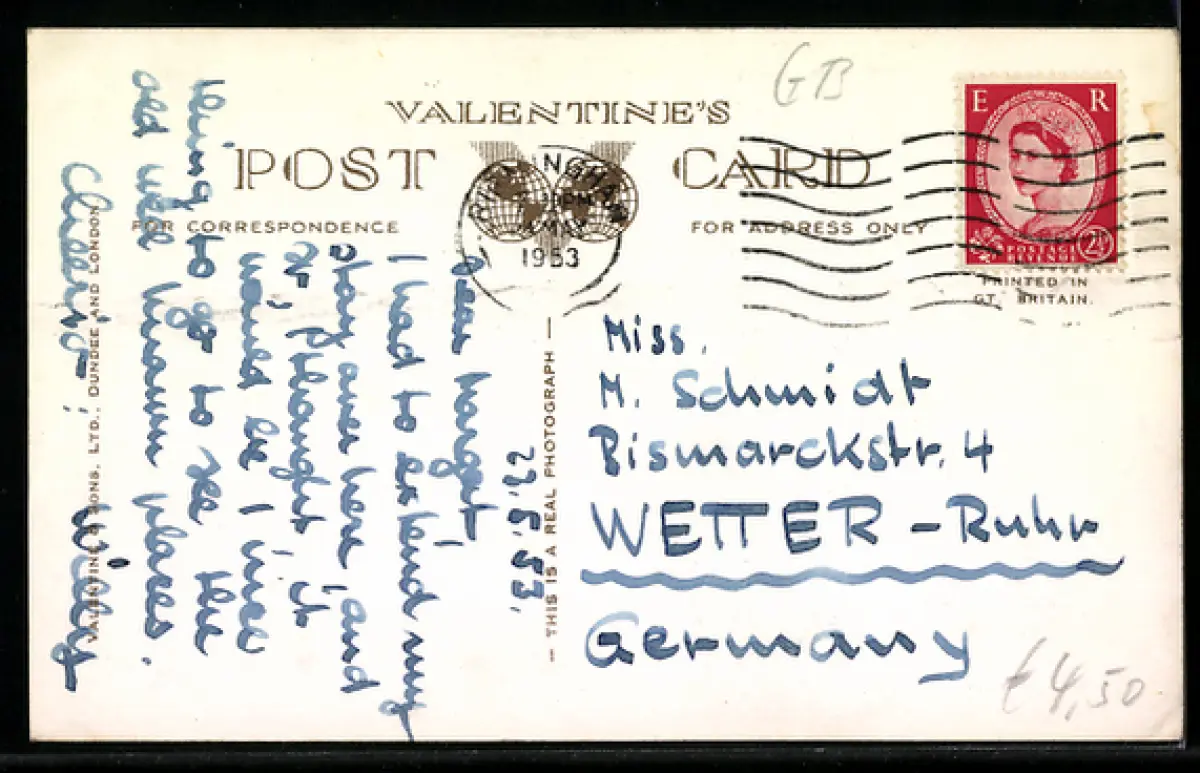 GB
VALENTINE'S
POST CARD
FOR CORRESPONDENCE
FOR ADDRESS ONLY
E R
POSTAGE
REVENUE
2½
PRINTED IN
GT. BRITAIN.
PM
MAY
1953
22.5.53.
Dear Margit!
I had to extend my
stay over here, and
so, I thought, it
would be a nice
thing to go to see the
old well known places.
Cheerio!
Willy
VALENTINE & SONS, LTD., DUNDEE AND LONDON
— THIS IS A REAL PHOTOGRAPH —
Miss.
M. Schmidt
Bismarckstr. 4
WETTER - Ruhr
Germany
€ 4,50